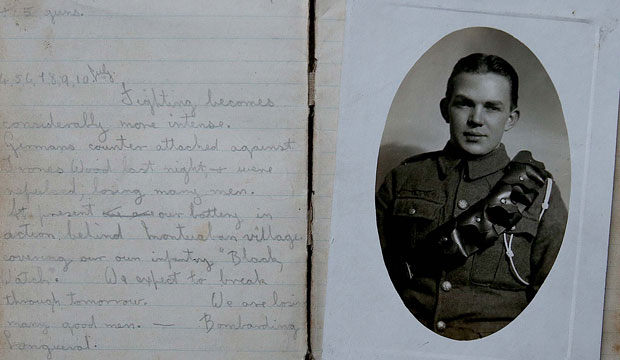 + 5 guns.
4,5,6,7,8,9,10 July.
Fighting becomes
considerably more intense.
Germans counter attacked against
Trones Wood last night, & were
repulsed, losing many men.
At present our battery in
action, behind Montauban village
covering our own infantry "Black
Watch". We expect to break
through tomorrow. We are losing
many good men. — Bombarding
Longueval.